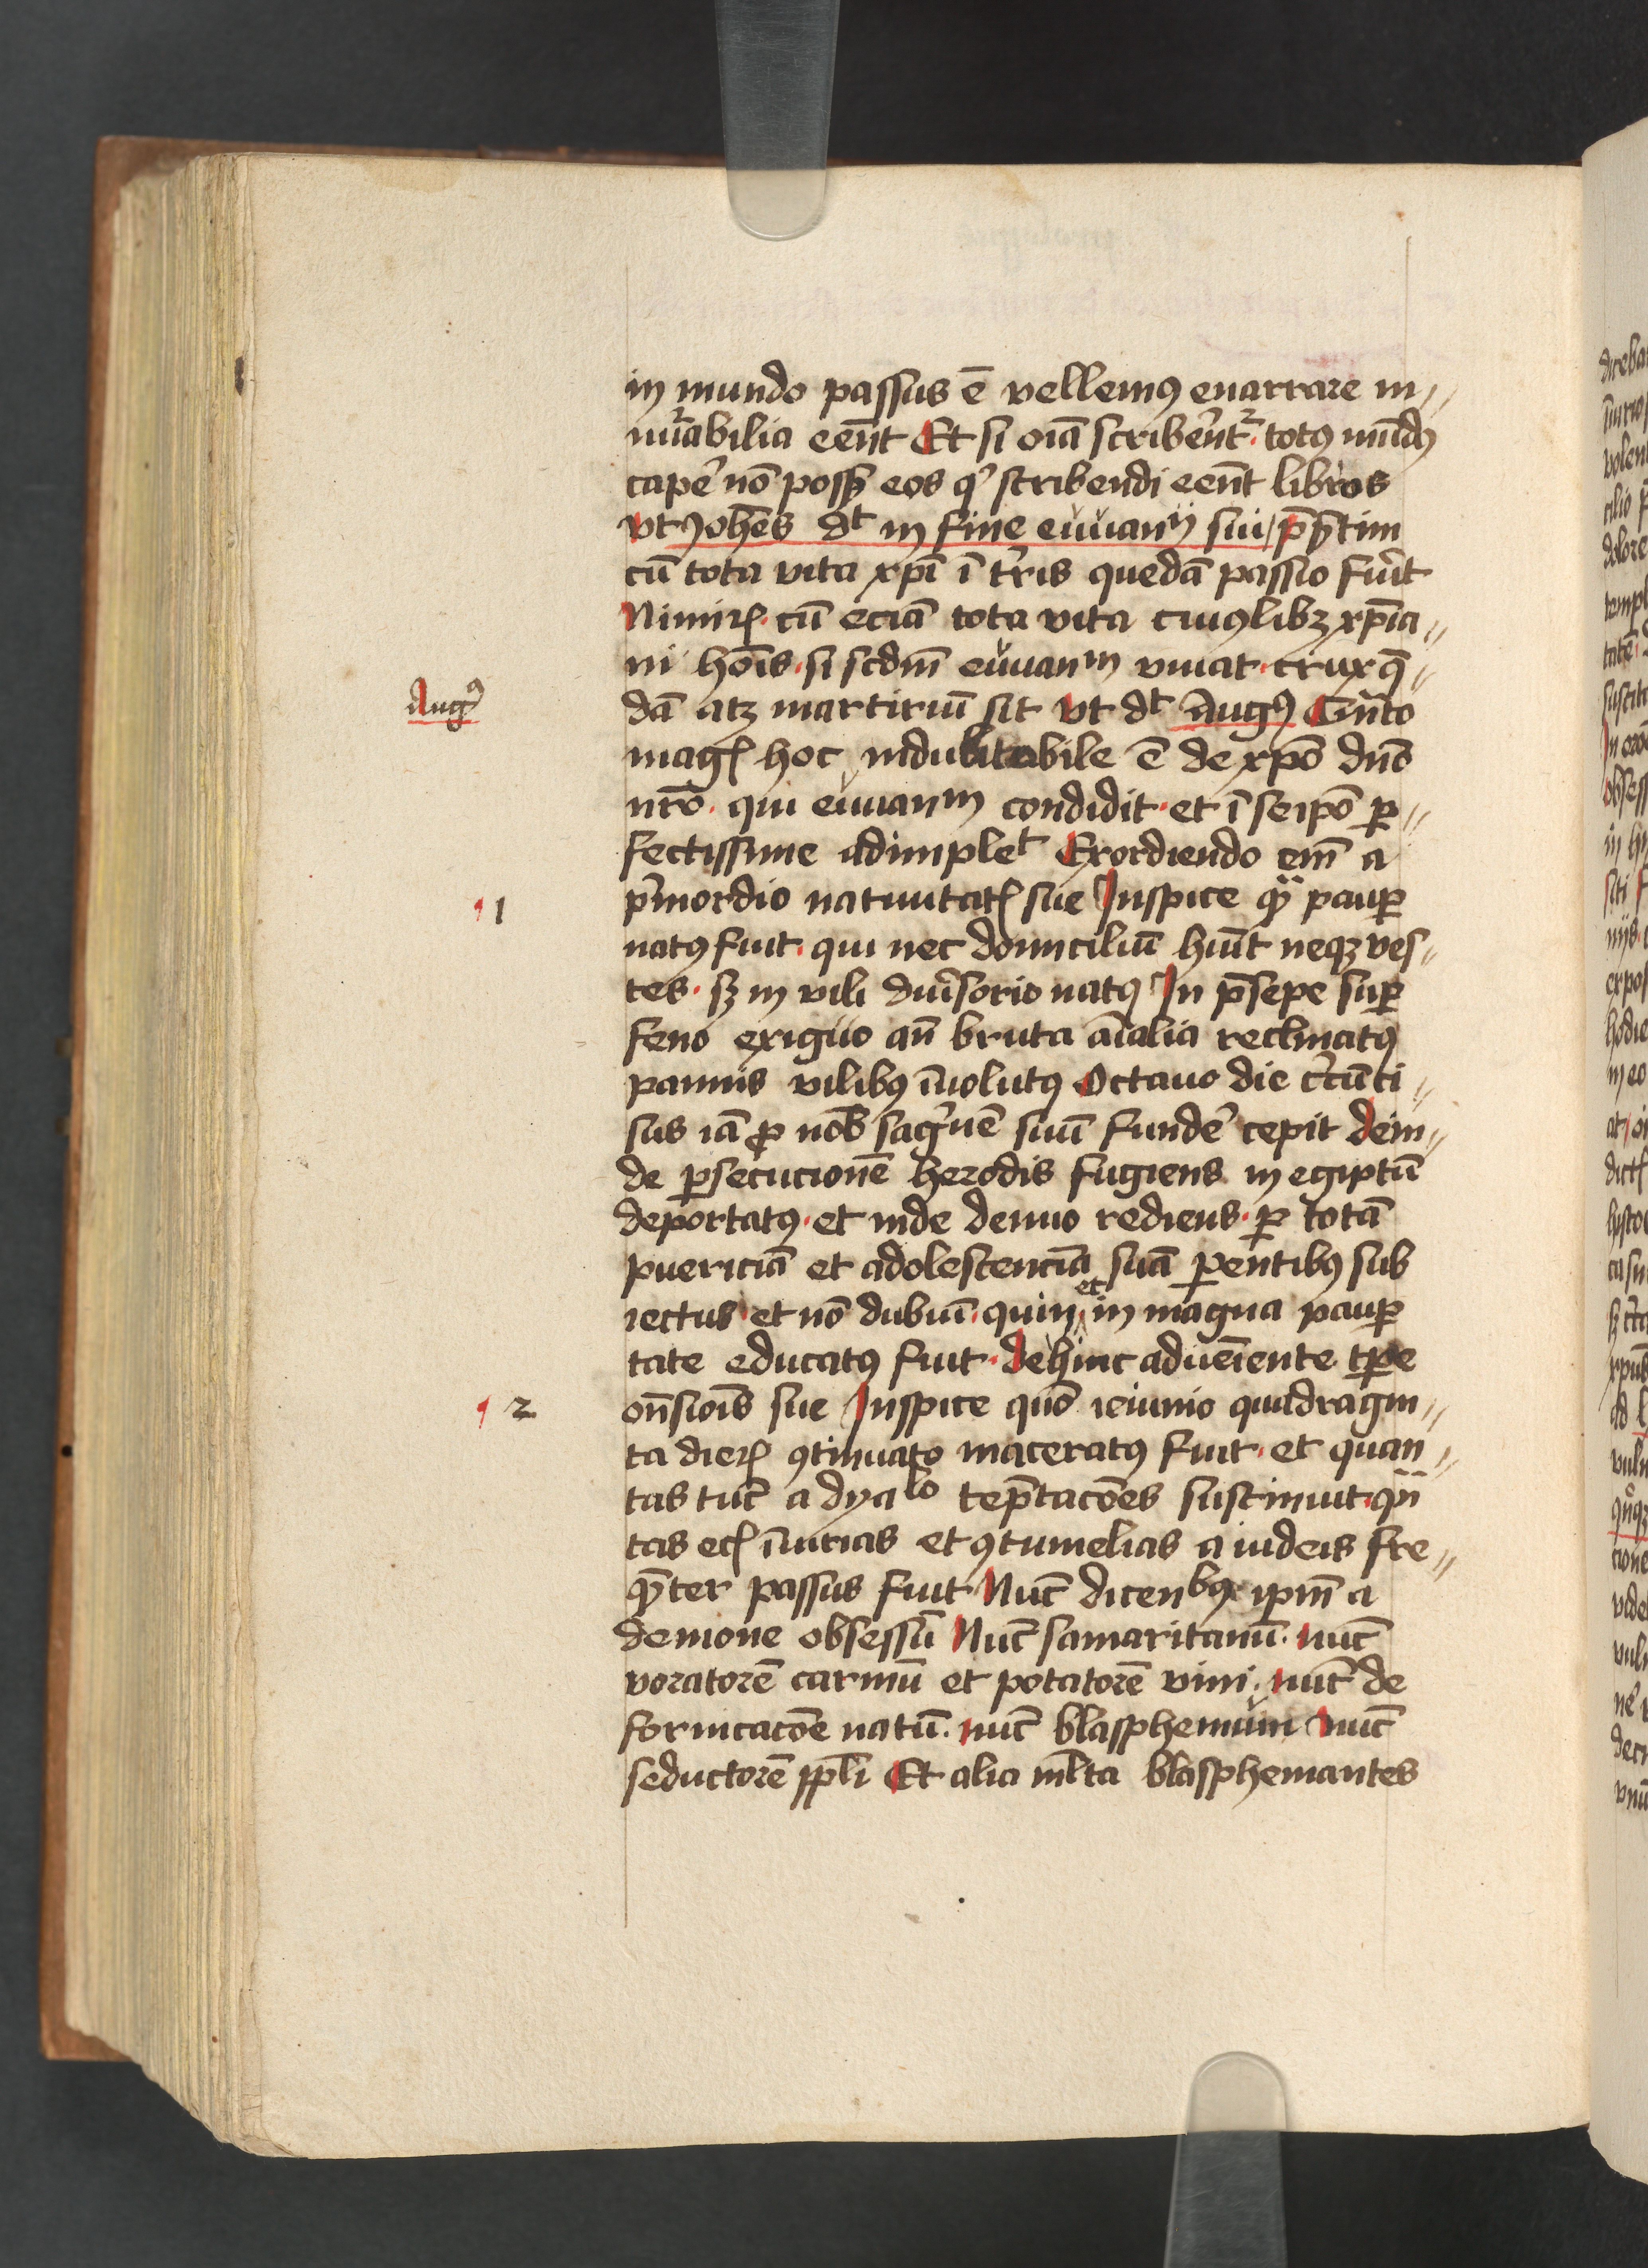 in mundo passus ē vellemꝰ enarrare in〃
nūabilia eēnt Et si oīa scriberent᷑. totꝰ mūdꝰ
capē nō possȝ eos qͥ scribendi eēnt libros
vt Johēs dt in fine ewanii sui p̄sertim
cū tota vita xp̄i ī tr̄is quedā passio fuīt
Nimiꝝ. cū eciā tota vita cuiꝰlibꝫ xp̄ia〃
ni hoīs. si scdm̄ ewanm viuat. crux q̄〃
Augꝰ
dā atꝫ martiriū sit vt dt Augꝰ Quāto
magꝭ hoc indubitabile ē de xp̄o dn̄o
nr̄o. qui ewanm condidit. et ī seip̄o ꝑ〃
fectissime adimplet Exordiendo em̄ a
¶ 1
p̄mordio natiuitatꝭ sue Inspice qͣ pauꝑ
natꝰ fuit. qui nec domiciliū hūit neqꝫ ves〃
tes. sꝫ in vili diuersorio natꝰ In p̄sepe suꝑ
feno exiguo an̄ bruta aīalia reclinatꝰ
pannis vilibꝰ īuolutꝰ Octauo die ccūci〃
sus iā ꝓ nob̄ sagwnē suū fundē cepit dein〃
de ꝑsecucionē herodis fugiens in egiptū
deportatꝰ. et inde denuo rediens. ꝑ totā
puericiā et adolescenciā suā ꝑentibꝰ sub
iectus. et nō dubiū. quin et in magna pauꝑ
tate educatꝰ fuit. dehinc adueīente tꝑe
¶ 2
on̄sioīs sue Inspice quō ieiunio quadragin〃
ta dieꝝ ꝯtinuato maceratꝰ fuit. et quan〃
tas tūc a dyalo tēptacōes sustinuit. qͣn
tas ecꝭ īiurias et ꝯtumelias a iudeis fre〃
qn̄ter passus fuit Nūc dicenbꝰ ip̄m a
demone obsessū Nūc samaritanū. nūc
voratorē carniū et potatorē vini. nūc de
fornicacōe natū. nūc blasphemum nūc
seductorē ppl̄i Et alia ml̄ta blasphemantes